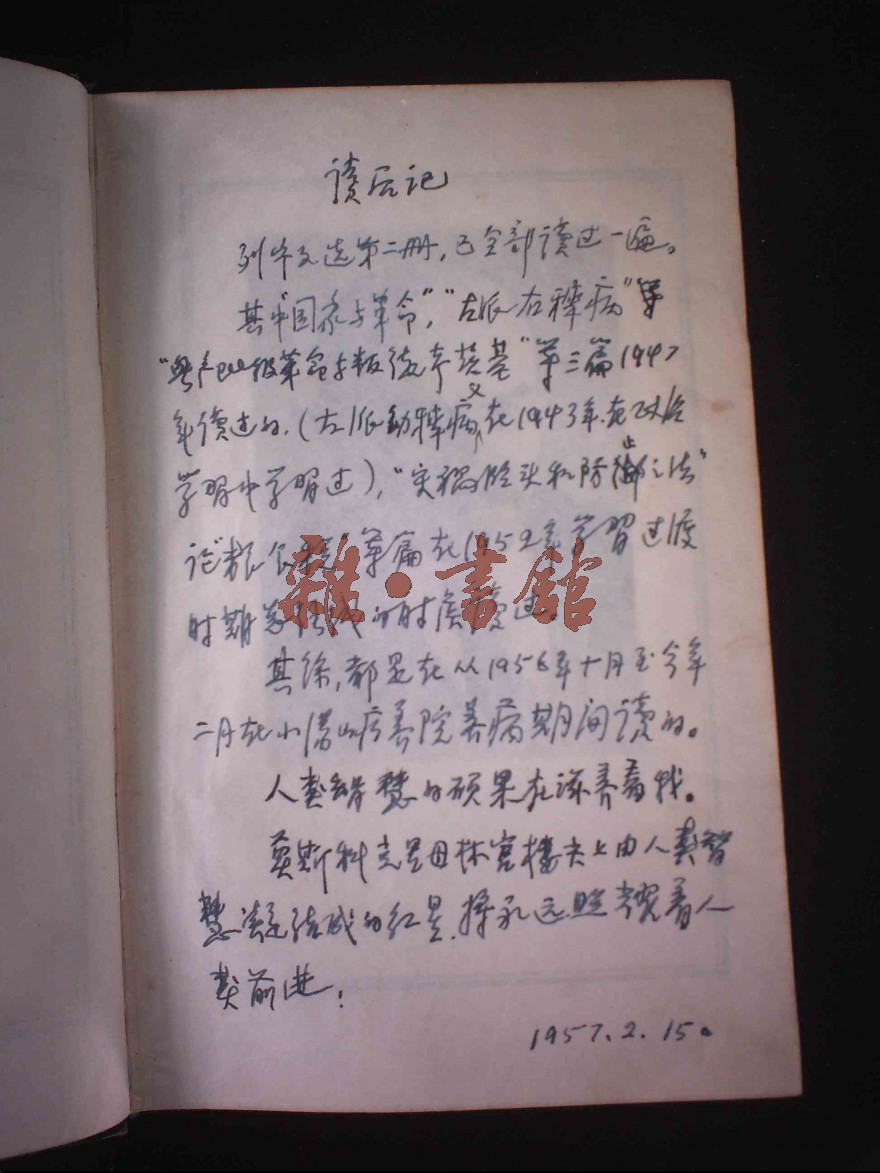 读后记
列宁文选第二册，已全部读过一遍。
其中“国家与革命”，“左派 幼稚病”等
“无产阶级革命与叛徒考茨基”等三篇1947
年读过的，（左派幼稚病又在1943年在政治
学习中学习过），“大祸临头和防止之法”
论“粮食税”等篇在1952年学习过渡
时期总路线的时候读过。
其余，都是在从1956年十月至今年
二月在小汤山疗养院养病期间读的。
人类智慧的硕果在滋养着我。
莫斯科克里姆林宫楼尖上由人类智
慧凝结成的红星，将永远照耀着人
类前进！
1957.2.15。
雜·書館